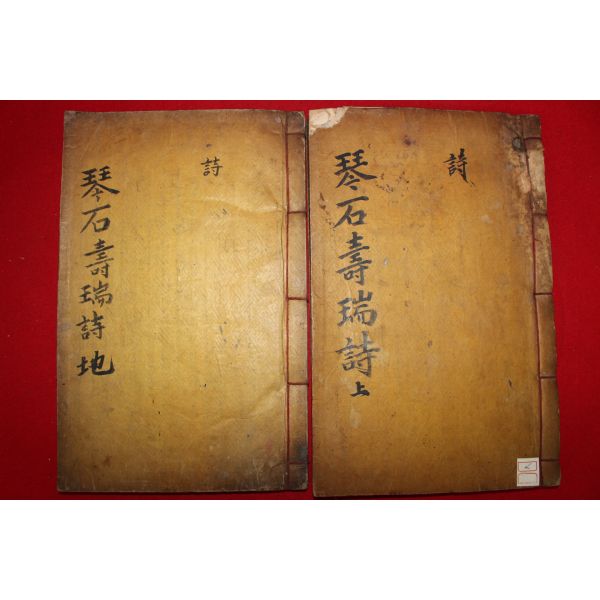 琴石壽瑞詩地
詩
琴石壽瑞詩上
詩